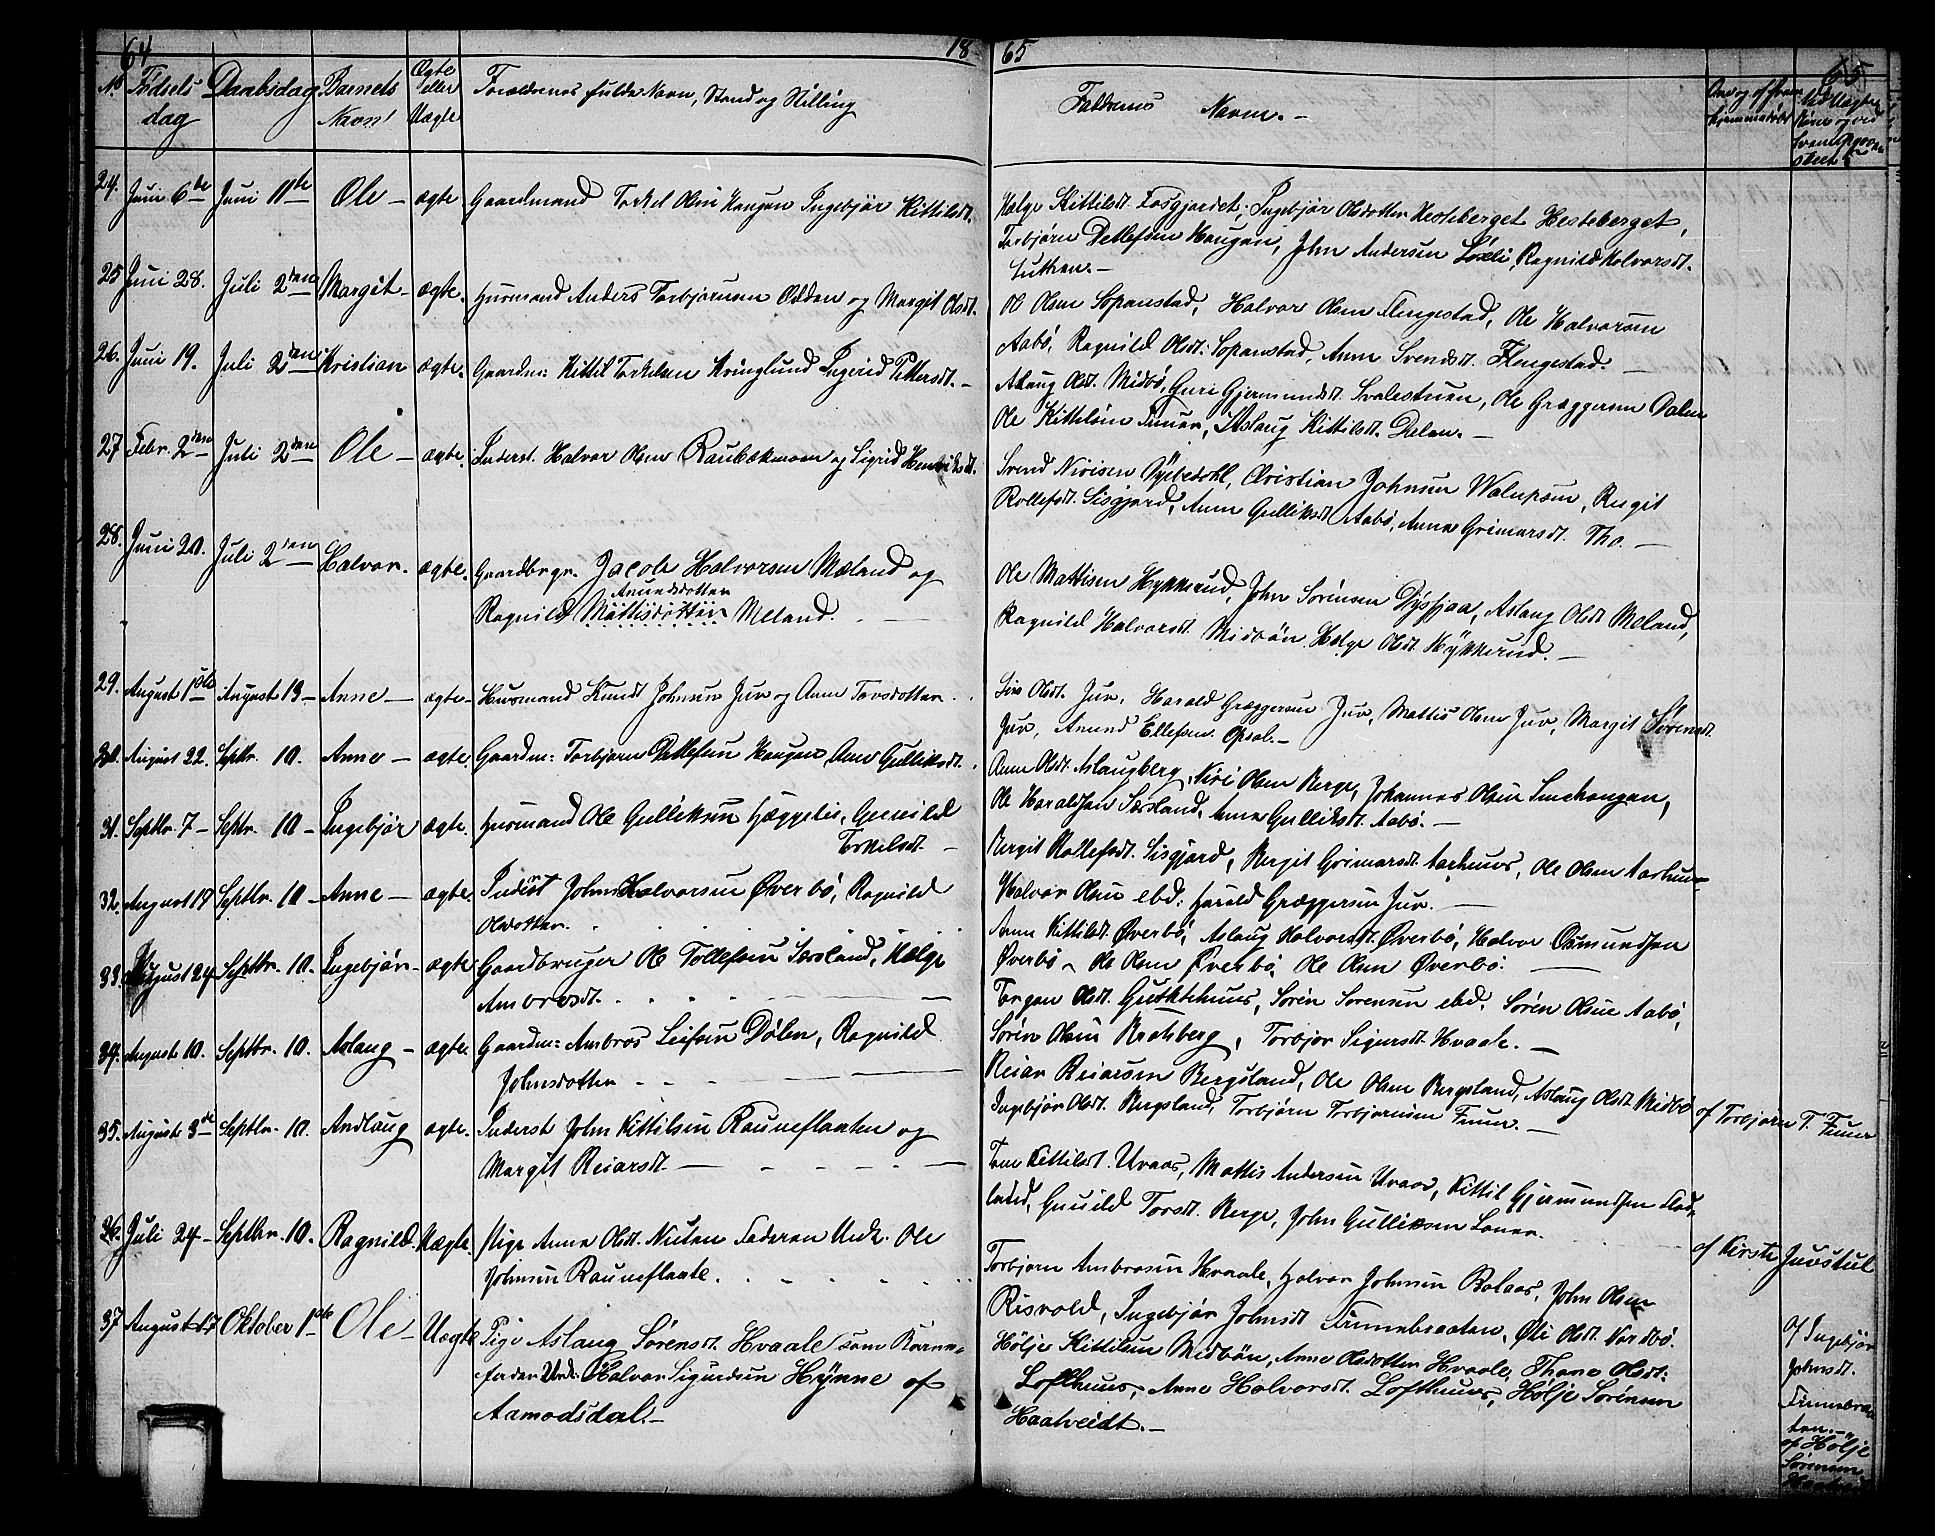 64
18
65
65
No Fødsels dag
Daabsdag
Barnets Navn
Ægte eller Uægte
Forældrenes fulde Navn, Stand og Stilling
Faddernes Navne. –
24. Juni 6te Juni 11te Ole – ægte Gaardmand Torkel Olsen Haugen Ingebjør Kittilsdt.
Helge Kittilsdt. Fosgjordet, Ingebjør Olsdotter Hesteberget Hesteberget,
Torbjørn Detlefsen Haugen, John Andersen Løxli, Ragnild Halvorsdt.
25 Juni 28. Juli 2den Margit – ægte. Husmand Anders Torbjørnsen Odden og Margit Olsdt.
Ole Olsen Sopanstad, Halvor Olsen Flengestad, Ole Halvorsen
Aabø, Ragnild Olsdt. Sopanstad, Anne Svendsdt. Flengestad. –
26. Juni 19. Juli 2den Kristian ægte. Gaardm: Kittil Torkelsen Kringlund Ingerid Pettersdt. –
Aslaug Olsdt. Midbø, Guri Gjermundsdt. Svalestuen, Ole Græggersen Dalen
Ole Kittelsen Finner, Aslaug Kittilsdt. Dalen. –
27 Febr. 2den Juli 2den Ole – ægte. Inderst. Halvor Olsen Raubækmoen og Sigrid Henriksdt.
Svend Nirisen Christian Johnsen Bergit
Rollefsdt. Sisgjord, Anne Gulliksdt. Aabø, Anne Grimarsdt. Tho. –
28. Juni 20. Juli 2den Halvor. ægte. Gaardbrgr. Jacob Halvorsen Mæland og
Anundsdotter
Ragnild Mattisdotter Mæland.
Ole Mattisen Hykkerud, John Sørensen Dysjaa, Aslaug Olsdt. Meland,
Ragnild Halvorsdt. Midbøn Helge Olsdt. Hykkerud. –
29. August 1ste August 13 – Anne – ægte – Husmand Knudt Johnsen Juv og Anne Torsdotter
Siri Olsdt. Juv, Harald Græggersen Juv, Mattis Olsen Juv, Margit Sørensdt.
Juv, Anund Ellefsen Opsal. –
30. August 22. Septbr. 10. Anne – ægte. Gaardm: Torbjørn Detlefsen Haugen, Anne Gulliksdt.
Anne Olsdt. Aslaugberg, Niri Olsen Berge, Johannes Olsen Smehaugen,
Ole Haraldsen Særsland, Anne Gulliksdt. Aabø. –
31. Septbr. 7 – Septbr. 10 – Ingebjør ægte Husmand Ole Gulliksen Hæggelie, Gunild
Torkelsdt. –
Bergit Rollefsdt. Sisgjord, Bergit Grimarsdt. Aarhuus, Ole Olsen Aarhuus
Halvor Olsen ebd: Harald Græggersen Juv. –
32. August 17 Septbr. 10 – Anne – ægte. Inderst John Halvorsen Øverbø, Ragnild
Olsdotter.
Anne Kittilsdt. Øverbø, Aslaug Halvorsdt. Øverbø, Halvor Osmundsen
Øverbø – Ole Olsen Øverbø, Ole Olsen Øverbø.
33. August 24 Septbr. 10. Ingebjør – ægte Gaardbruger Ole Tollefsen Særsland, Helge
Ambrosdt.
Torgon Olsdt. Sørén Sørensen ebd, Sørén Olsen Aabø,
Sørén Olsen Torbjør Sigursdt. Hvaale. –
34. August 10. Septbr. 10. Aslaug – ægte. Gaardm: Ambros Leifsen Dølen, Ragnild
Johnsdotter
Reiar Reiarsen Bergsland, Ole Olsen Bergsland, Aslaug Olsdt. Midbø
Ingebjør Olsdt. Bergsland, Torbjørn Torbjørnsen Finner. –
35. August 3de Septbr. 10. Andlaug ægte. Inderst John Kittilsen Rauneflaaten og
Margit Reiarsdt. –
af Torbjørn T. Finner
Tone Kittilsdt. Uraas, Mattis Andersen Uraas, Kittil Gjermundsen Flad-
land, Gunild Torsdt. Berge, John Gulliksen Loner.
36. Juli 24 – Septbr. 10. Ragnild – Uægte Pige Anne Olsdt. Nuten Faderen Unk. Ole
Johnsen Rauneflaate.
af Kirste Juvstul
Torbjørn Ambrosen Hvaale, Halvor Johnsen Bolaas, John Olsen
Risvold, Ingebjør Johnsdt Finnebraaten, Olsdt. Nordbø.
37 August 17 Oktober 1ste Ole – Uægte Pige Aslaug Sørensdt. Hvaale (som Barne-
fader Unk: Halvor Sigurdsen Hynne af
Aamodsdal. –
Høljе Kittilsen Midbøn, Anne Olsdotter Hvaale, Thone Olsdt.
Lofthuus, Anne Halvorsdt. Lofthuus, Hølje Sørensen
Haatveidt. –
af Ingebjør
Johnsdt.
Finnebraa-
ten. –
af Hølje
Sørensen